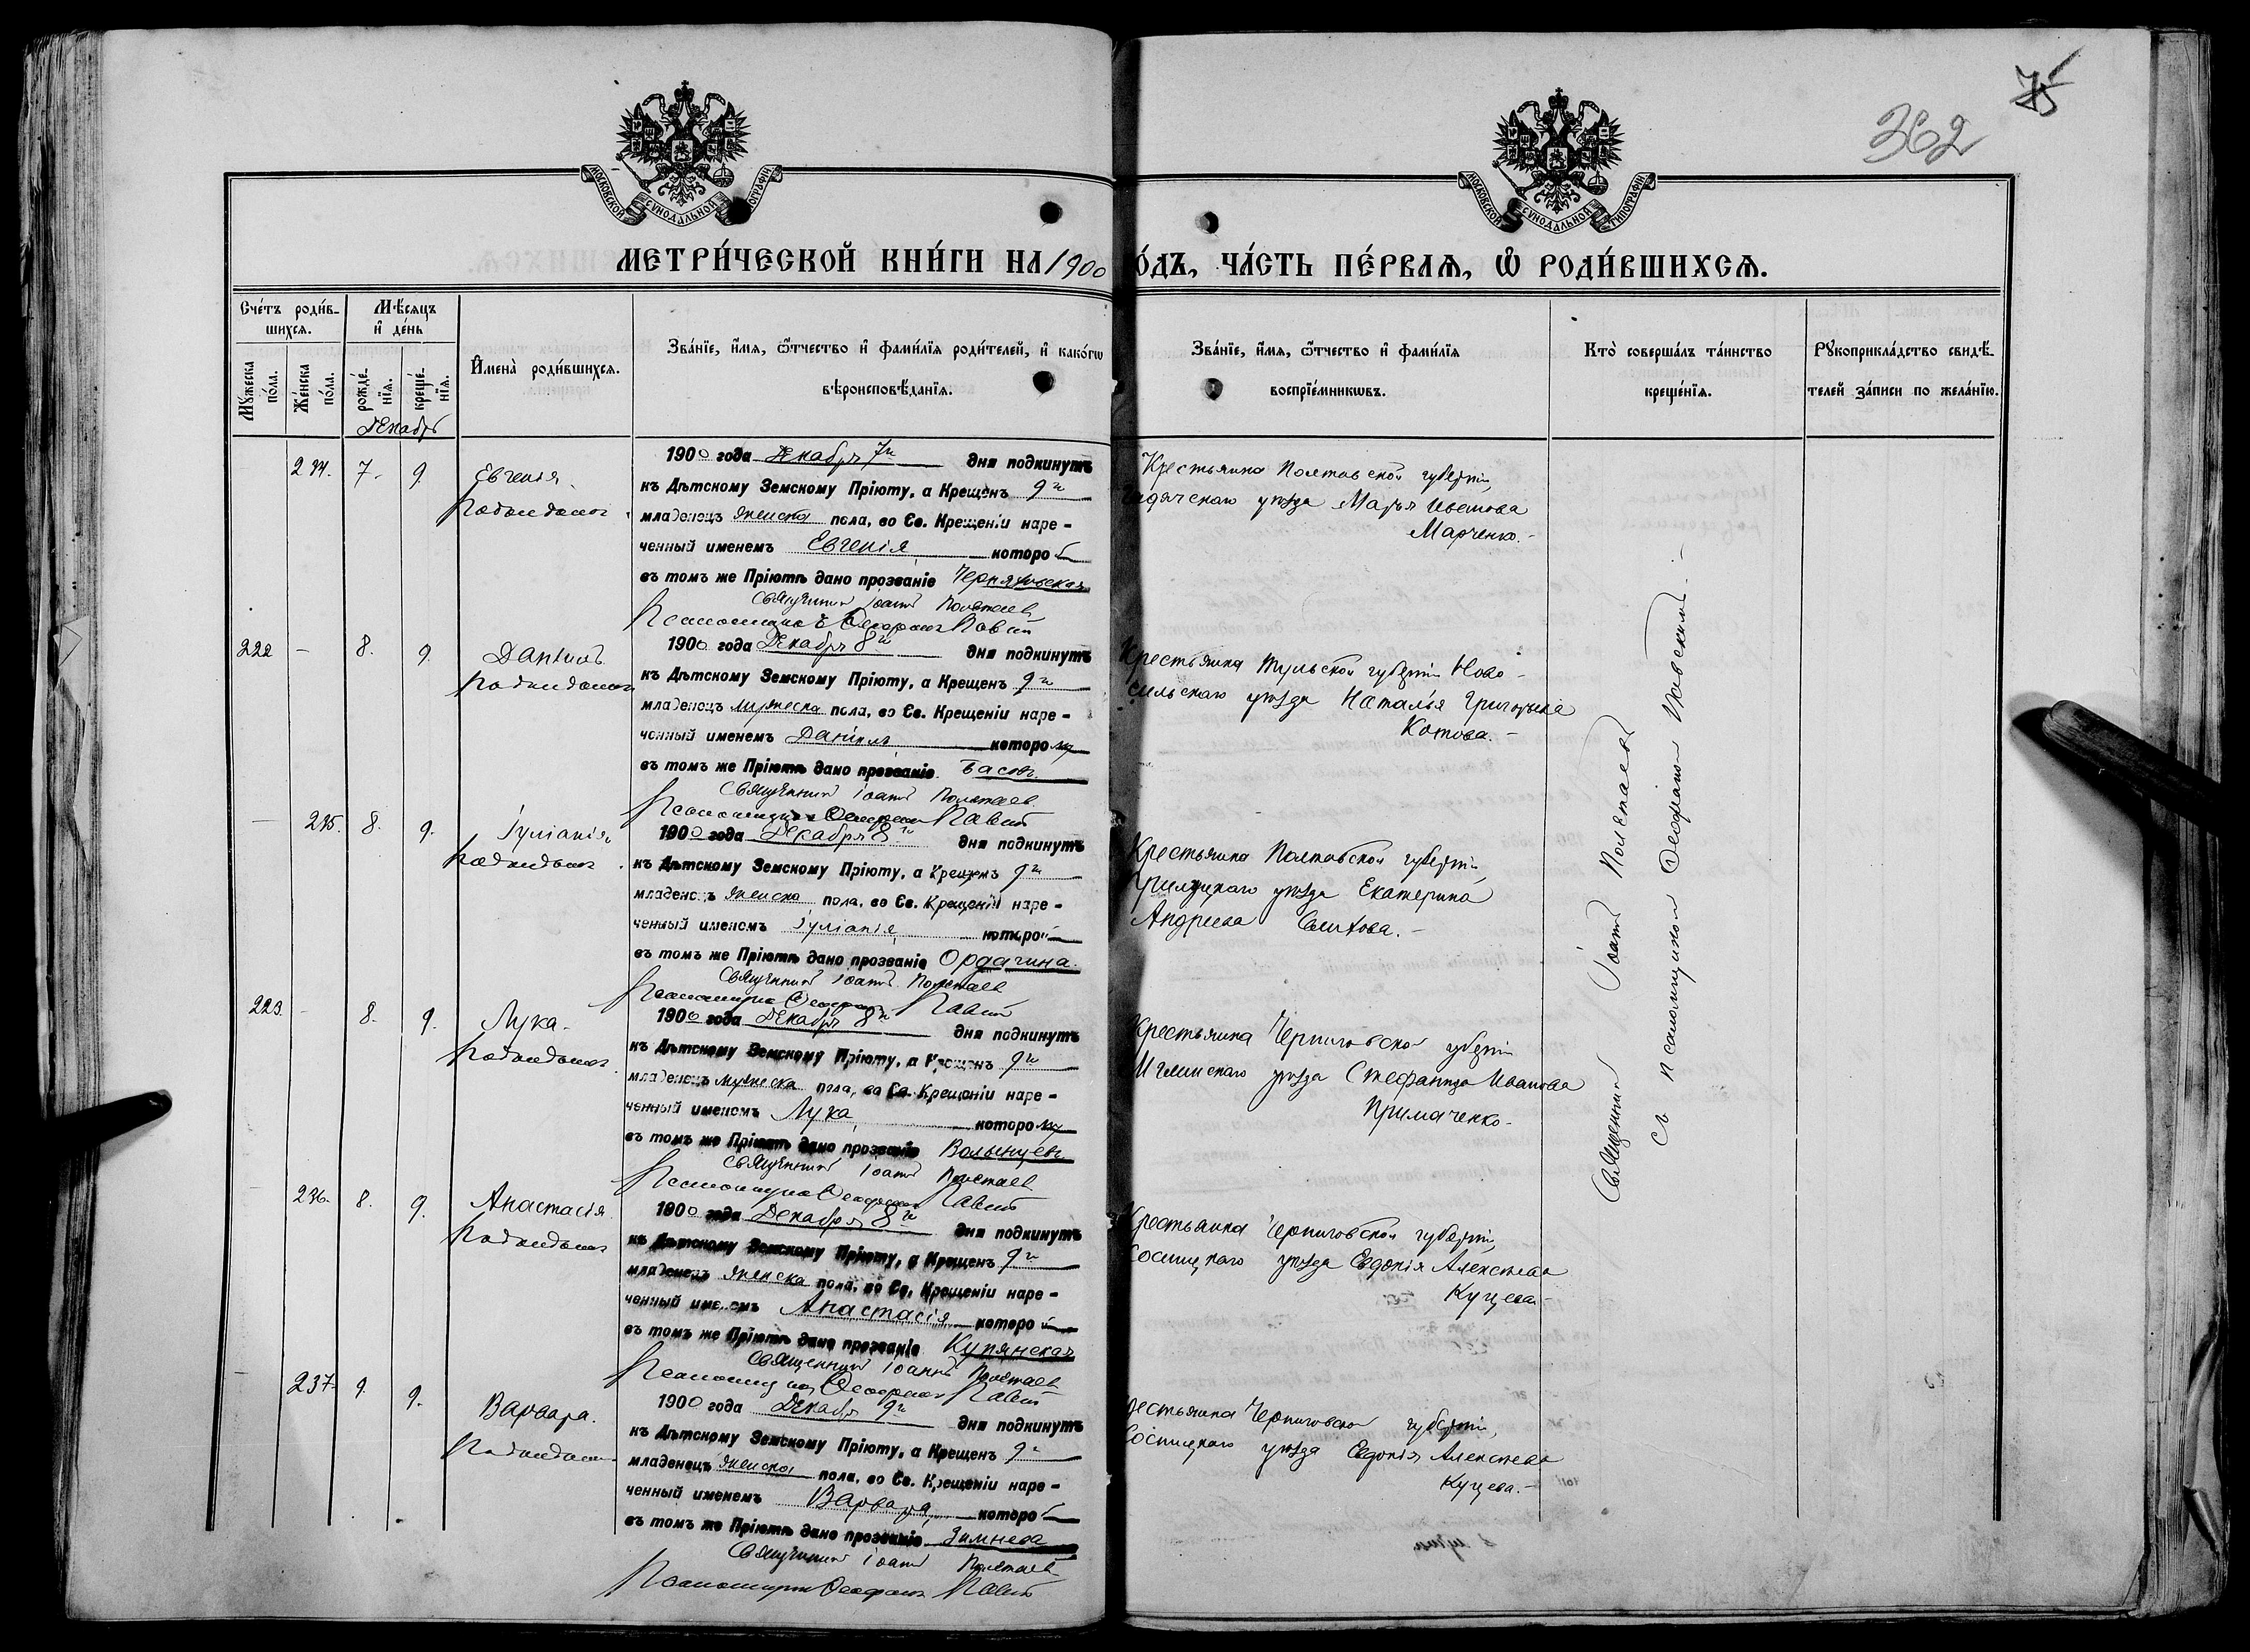 362
75
МОСКОВСКОЙ СУНОДАЛЬНОЙ ТИПОГРАФІИ
МОСКОВСКОЙ СУНОДАЛЬНОЙ ТИПОГРАФІИ
МЕТРИ́ЧЕСКОЙ КНИ́ГИ НА 1900
О́ДЪ, ЧА́СТЬ ПЕ́РВАЯ, Ѡ҆ РОДИ́ВШИХСЯ.
Сче́тъ роди́в-
шихся.
Му́жеска
по́ла.
Же́нска
по́ла.
Мѣ́сяцъ
и҆ де́нь
рожде́-
нїя.
креще́-
нїя.
Декабрь
И҆мена̀ роди́вшихся.
Зва́нїе, и҆́мя, ѻ҆́тчество и҆ фами́лїя роди́телей, и҆ како́гѡ
вѣроисповѣ́данїя.
Зва́нїе, и҆́мя, ѻ҆́тчество и҆ фами́лїя
воспрїе́мникѡвъ.
Кто̀ соверша́лъ та́инство
креще́нїя.
Рꙋкоприкла́дство свидѣ́-
телей за́писи по жела́нїю.
234. 7. 9. Евгенія
1900 года Декабря 7го дня подкинутъ
къ Дѣтскому Земскому Пріюту, а Крещенъ 9го
младенецъ женска пола, во Св. Крещеніи наре-
ченный именемъ Евгенія которой
въ томъ же Пріютѣ дано прозваніе Черняховская
Священникъ Іоаннъ Полетаевъ
Псаломщикъ Ѳеофанъ
Крестьянка Полтавской губерніи,
Гадячскаго уѣзда Марья Иванова
Марченко.-
222 - 8. 9. Даніилъ
1900 года Декабря 8го дня подкинутъ
къ Дѣтскому Земскому Пріюту, а Крещенъ 9го
младенецъ мужеска пола, во Св. Крещеніи наре-
ченный именемъ Даніилъ которому
въ томъ же Пріютѣ дано прозваніе Басовъ
Священникъ Іоаннъ Полетаевъ
Псаломщикъ Ѳеофанъ
Крестьянка Тульской губерніи Ново-
сильскаго уѣзда Наталья Григорьева
Котова.-
- 235. 8. 9. Іуліанія
1900 года Декабря 8го дня подкинутъ
къ Дѣтскому Земскому Пріюту, а Крещенъ 9го
младенецъ женска пола, во Св. Крещеніи наре-
ченный именемъ Іуліанія которой
въ томъ же Пріютѣ дано прозваніе Ордагина
Священникъ Іоаннъ Полетаевъ
Псаломщикъ Ѳеофанъ
Крестьянка Полтавской губерніи,
уѣзда Екатерина
Андреева
223. - 8. 9. Лука
1900 года Декабря 8го дня подкинутъ
къ Дѣтскому Земскому Пріюту, а Крещенъ 9го
младенецъ мужеска пола, во Св. Крещеніи наре-
ченный именемъ Лука которому
въ томъ же Пріютѣ дано прозваніе Волынцевъ
Священникъ Іоаннъ Полетаевъ
Псаломщикъ Ѳеофанъ
Крестьянка Черниговской губерніи
Мглинскаго уѣзда Стефанида Иванова
Примаченко-
236. 8. 9. Анастасія
1900 года Декабря 8го дня подкинутъ
къ Дѣтскому Земскому Пріюту, а Крещенъ 9го
младенецъ женска пола, во Св. Крещеніи наре-
ченный именемъ Анастасія которой
въ томъ же Пріютѣ дано прозваніе Купянская
Священникъ Іоаннъ Полетаевъ
Псаломщикъ Ѳеофанъ
Крестьянка Черниговской губерніи,
Сосницкаго уѣзда Евдокія Алексѣева
Куцева-
237. 9. 9. Варвара.
1900 года Декабря 9го дня подкинутъ
къ Дѣтскому Земскому Пріюту, а Крещенъ 9го
младенецъ женска пола, во Св. Крещеніи наре-
ченный именемъ Варвара которой
въ томъ же Пріютѣ дано прозваніе Зимнева
Священникъ Іоаннъ Полетаевъ
Псаломщикъ Ѳеофанъ
Крестьянка Черниговской губерніи,
Сосницкаго уѣзда Евдокія Алексѣева
Куцева.-
Священникъ Іоаннъ Полетаевъ
съ псаломщикомъ Ѳеофаномъ